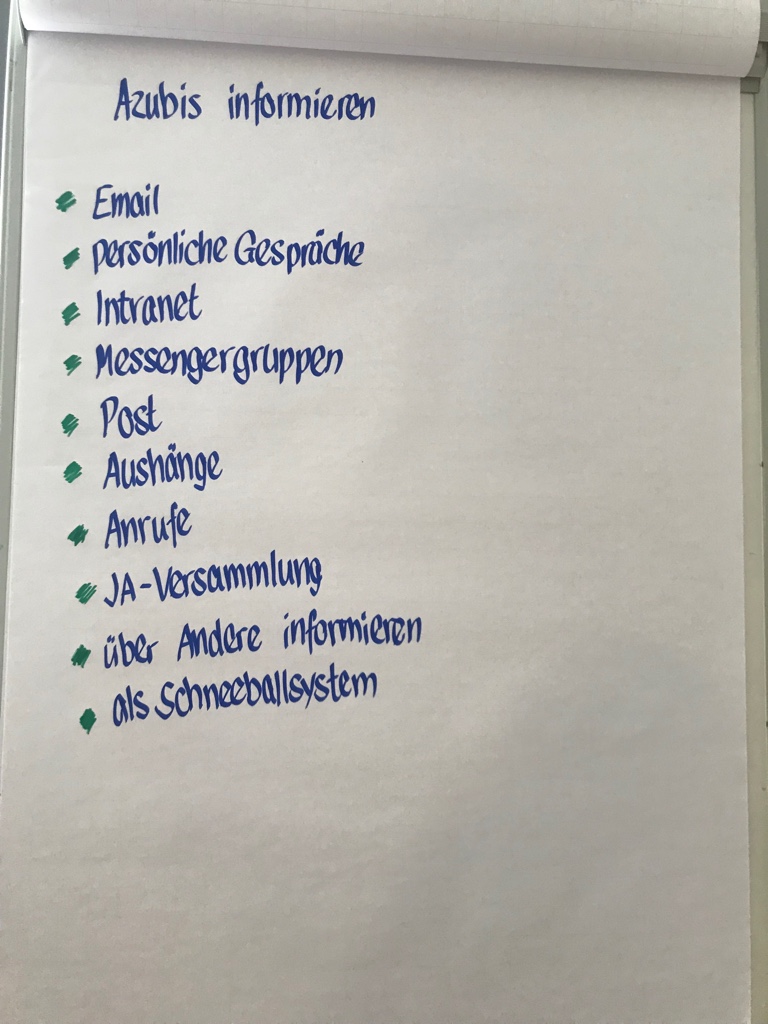 Azubis informieren
Email
persönliche Gespräche
Intranet
Messengergruppen
Post
Aushänge
Anrufe
JA-Versammlung
über Andere informieren
als Schneeballsystem